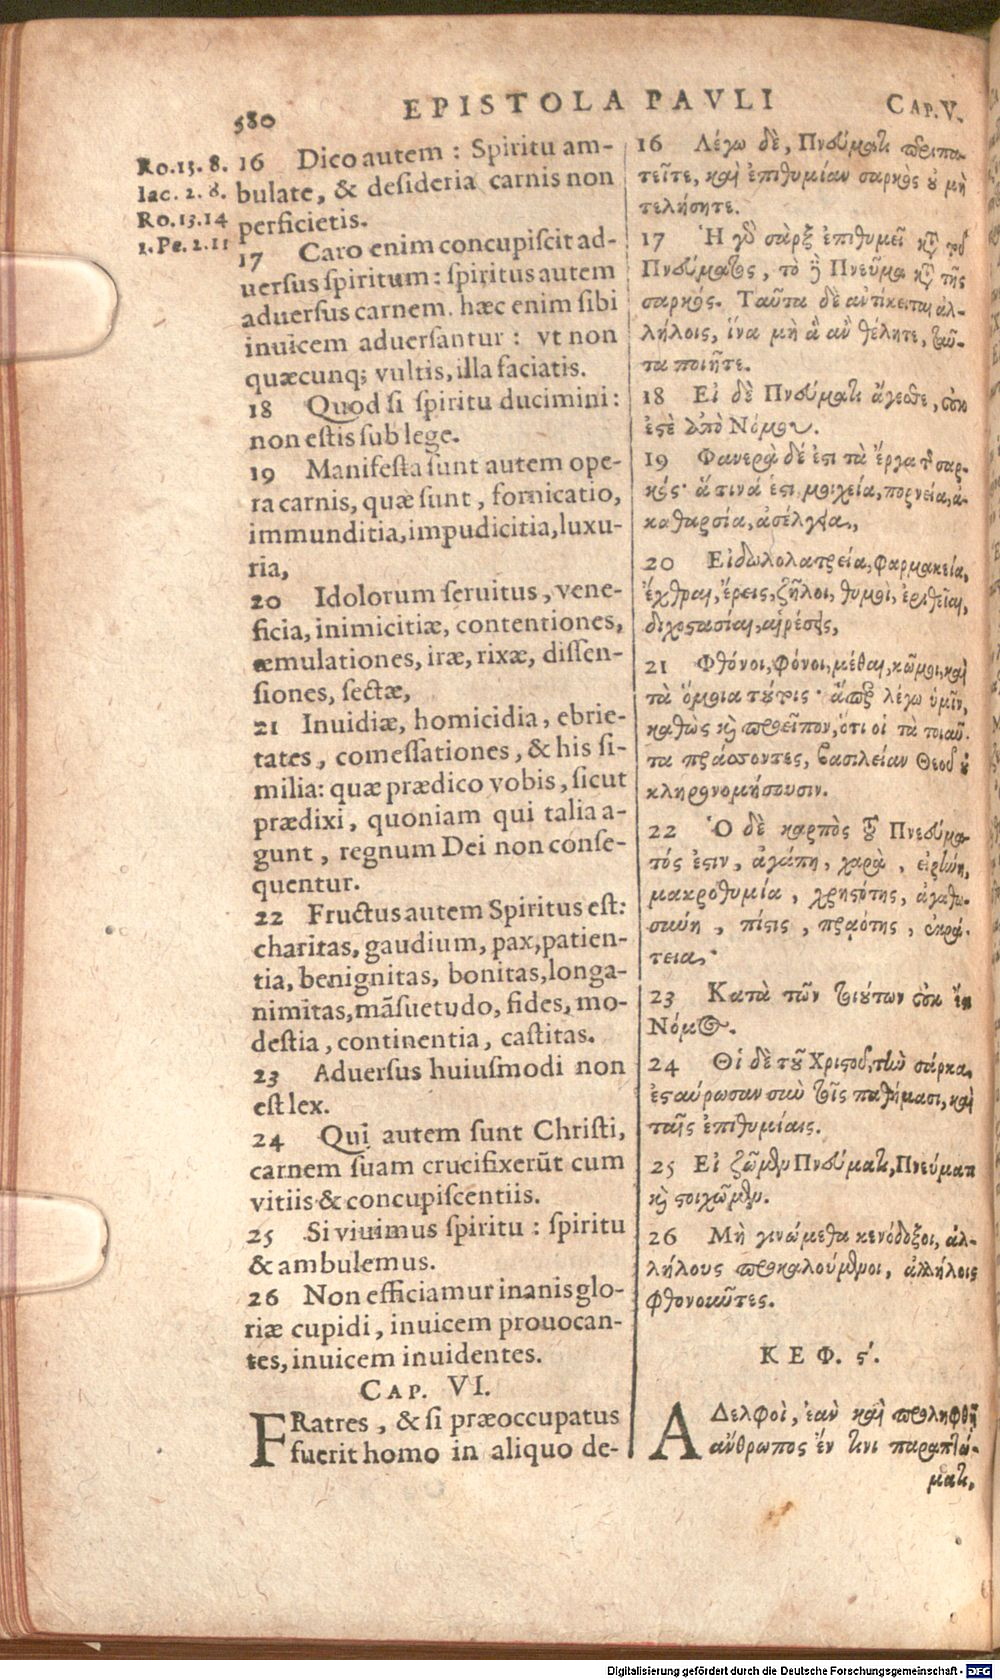 580
EPISTOLA PAVLI
CAP. V.
Ro. 13. 8.
Iac. 2. 8.
Ro. 13. 14
1. Pe. 2. 11
16 Dico autem : Spiritu am-
bulate, & desideria carnis non
perficietis.
17 Caro enim concupiscit ad-
uersus spiritum : spiritus autem
aduersus carnem. hæc enim sibi
inuicem aduersantur : vt non
quæcunq; vultis, illa faciatis.
18 Quod si spiritu ducimini :
non estis sub lege.
19 Manifesta sunt autem ope-
ra carnis, quæ sunt, fornicatio,
immunditia, impudicitia, luxu-
ria,
20 Idolorum seruitus, vene-
ficia, inimicitiæ, contentiones,
æmulationes, iræ, rixæ, dissen-
siones, sectæ,
21 Inuidiæ, homicidia, ebrie-
tates, comessationes, & his si-
milia: quæ prædico vobis, sicut
prædixi, quoniam qui talia a-
gunt, regnum Dei non conse-
quentur.
22 Fructus autem Spiritus est:
charitas, gaudium, pax, patien-
tia, benignitas, bonitas, longa-
nimitas, mãsuetudo, fides, mo-
destia, continentia, castitas.
23 Aduersus huiusmodi non
est lex.
24 Qui autem sunt Christi,
carnem suam crucifixerũt cum
vitiis & concupiscentiis.
25 Si viuimus spiritu : spiritu
& ambulemus.
26 Non efficiamur inanis glo-
riæ cupidi, inuicem prouocan-
tes, inuicem inuidentes.
CAP. VI.
FRatres, & si præoccupatus
fuerit homo in aliquo de-
16 Λέγω δὲ, Πνεύματι περιπα-
τεῖτε, καὶ ἐπιθυμίαν σαρκὸς οὐ μὴ
τελέσητε.
17 Ἡ γὰρ σὰρξ ἐπιθυμεῖ κατὰ τοῦ
Πνεύματος, τὸ δὲ Πνεῦμα κατὰ τῆς
σαρκός. Ταῦτα δὲ ἀντίκειται ἀλ-
λήλοις, ἵνα μὴ ἃ ἂν θέλητε, ταῦ-
τα ποιῆτε.
18 Εἰ δὲ Πνεύματι ἄγεσθε, οὐκ
ἐστὲ ὑπὸ Νόμον.
19 Φανερὰ δέ ἐστι τὰ ἔργα τῆς σαρ-
κός· ἅτινά ἐστι μοιχεία, πορνεία, ἀ-
καθαρσία, ἀσέλγεια,
20 Εἰδωλολατρεία, φαρμακεία,
ἔχθραι, ἔρεις, ζῆλοι, θυμοὶ, ἐριθεῖαι,
διχοστασίαι, αἱρέσεις,
21 Φθόνοι, φόνοι, μέθαι, κῶμοι, καὶ
τὰ ὅμοια τούτοις· ἅπερ λέγω ὑμῖν,
καθὼς καὶ προεῖπον, ὅτι οἱ τὰ τοιαῦ-
τα πράσσοντες, βασιλείαν Θεοῦ οὐ
κληρονομήσουσιν.
22 Ὁ δὲ καρπὸς τοῦ Πνεύμα-
τός ἐστιν, ἀγάπη, χαρὰ, εἰρήνη,
μακροθυμία, χρηστότης, ἀγαθω-
σύνη, πίστις, πρᾳότης, ἐγκρά-
τεια·
23 Κατὰ τῶν τοιούτων οὐκ ἔστι
Νόμος.
24 Οἱ δὲ τοῦ Χριστοῦ, τὴν σάρκα
ἐσταύρωσαν σὺν τοῖς παθήμασι, καὶ
ταῖς ἐπιθυμίαις.
25 Εἰ ζῶμεν Πνεύματι, Πνεύματι
καὶ στοιχῶμεν.
26 Μὴ γινώμεθα κενόδοξοι, ἀλ-
λήλους προκαλούμενοι, ἀλλήλοις
φθονοῦντες.
ΚΕΦ. ϛʹ.
ΑΔελφοὶ, ἐὰν καὶ προληφθῇ
ἄνθρωπος ἔν τινι παραπτώ-
ματι,
Digitalisierung gefördert durch die Deutsche Forschungsgemeinschaft - DFG